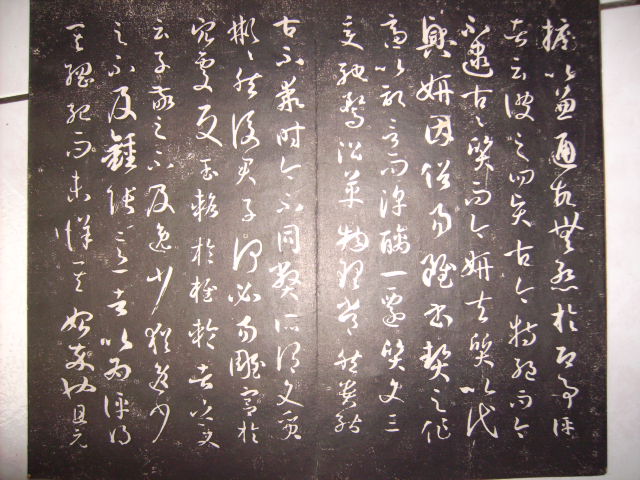 摭以兼通故無慚於即事評
者云彼之四賢古今特絕而今
不逮古〻質而今妍夫質以代
興妍因俗易雖書契之作
適以記言而淳醨一遷質文三
變馳騖沿革物理常然貴能
古不乖時今不同弊所謂文質
彬〻然後君子何必易雕宮於
穴處反玉輅於椎輪者乎又
云子敬之不及逸少猶逸少
之不及鍾張意者以為評得
其綱紀而未詳其始卒也且元